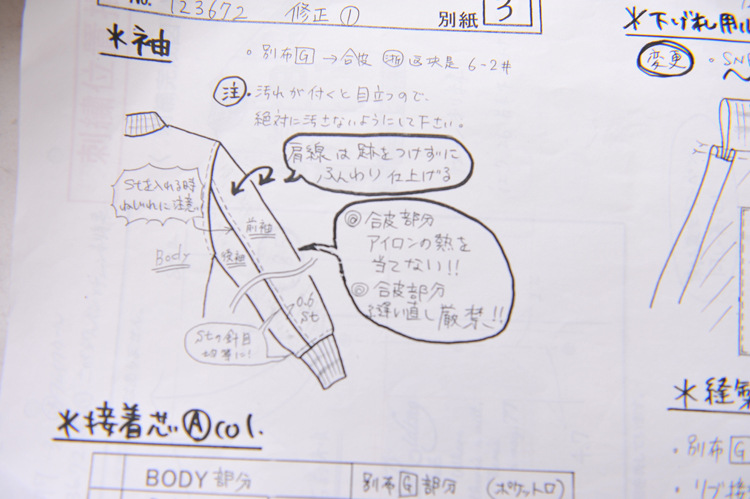 No. 123672 修正① 別紙 3
＊袖
・別布G → 合皮
6-2#
＊下げ札用
変更
・SNP
注・汚れが付くと目立つので、
絶対に汚さないようにして下さい。
肩線は跡をつけずに
ふんわり仕上げる
Stを入れる時
ねじれに注意
前袖
後袖
Body
◎合皮部分
アイロンの熱を
当てない!!
◎合皮部分
縫い直し厳禁!!
0.6
St
Stの針目
切等に!
＊縫製
・別布G
・リブ接
＊接着芯Ⓐcol.
BODY部分 別布G部分 (ポケット口)